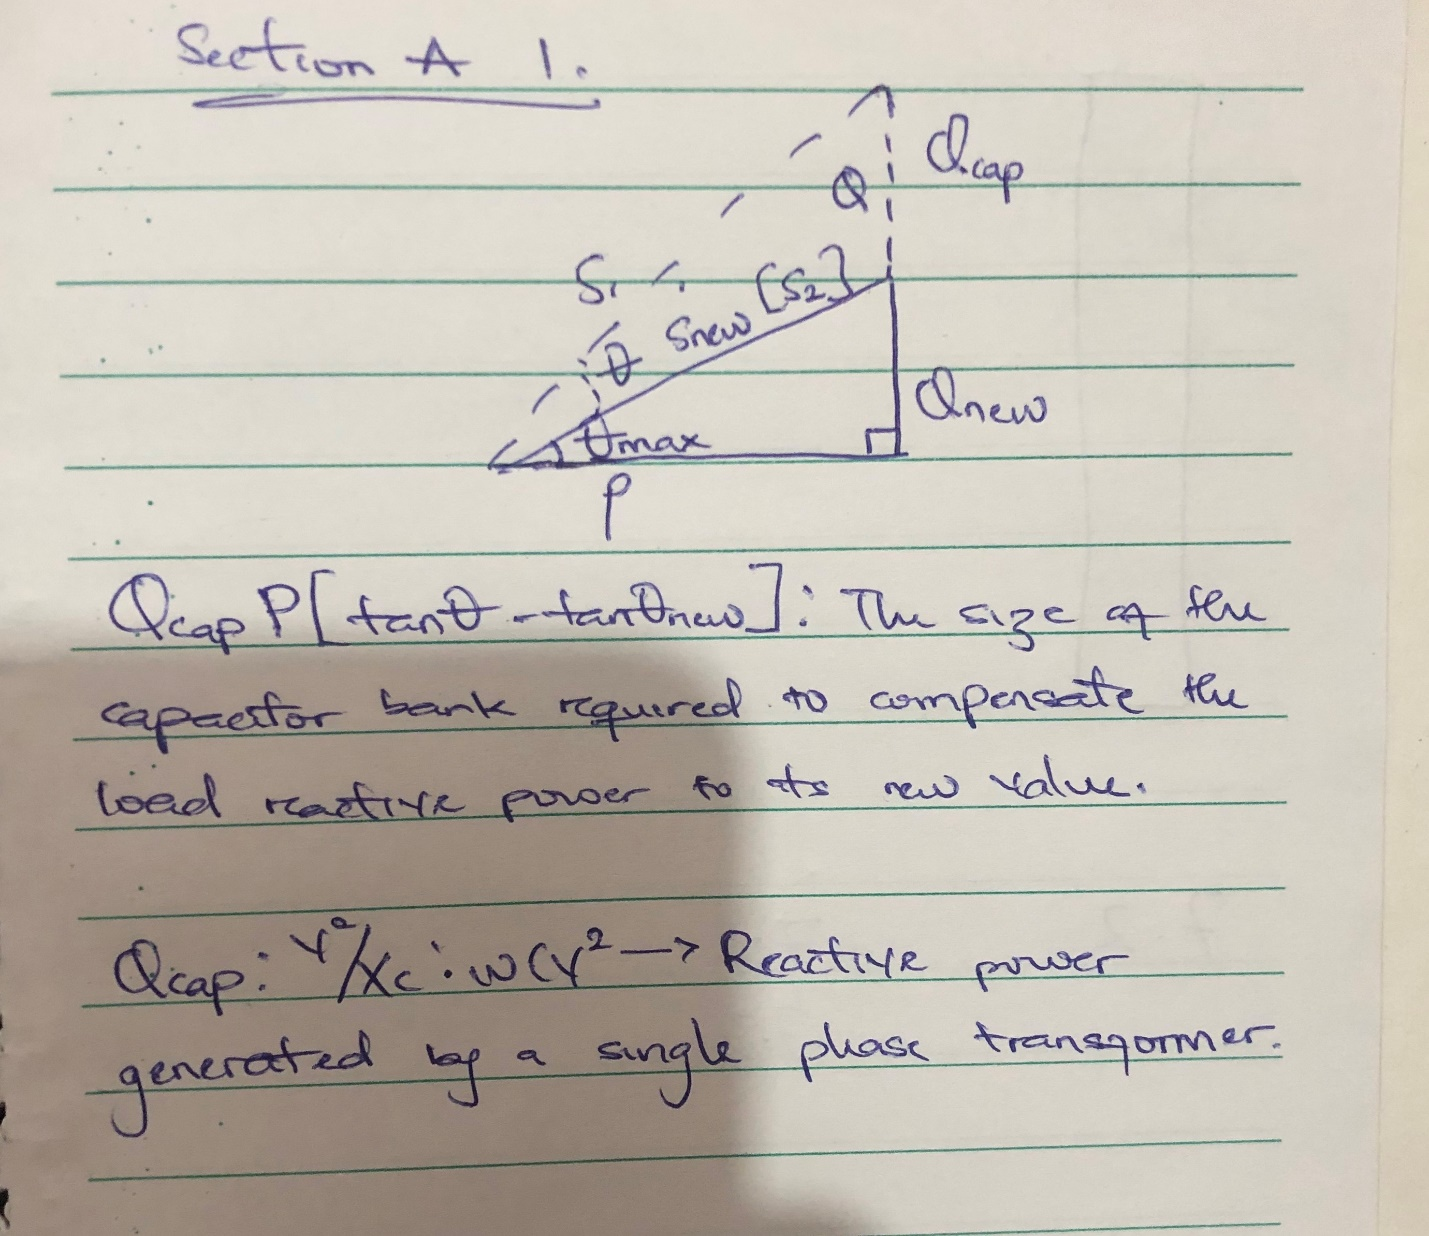 Section A 1.
Qcap
Q
S1
Snew [S2]
θ
Qnew
θmax
P
Qcap P[tanθ - tanθnew]: The size of the
capacitor bank required to compensate the
load reactive power to its new value.
Qcap: V²/Xc : wCV² → Reactive power
generated by a single phase transformer.